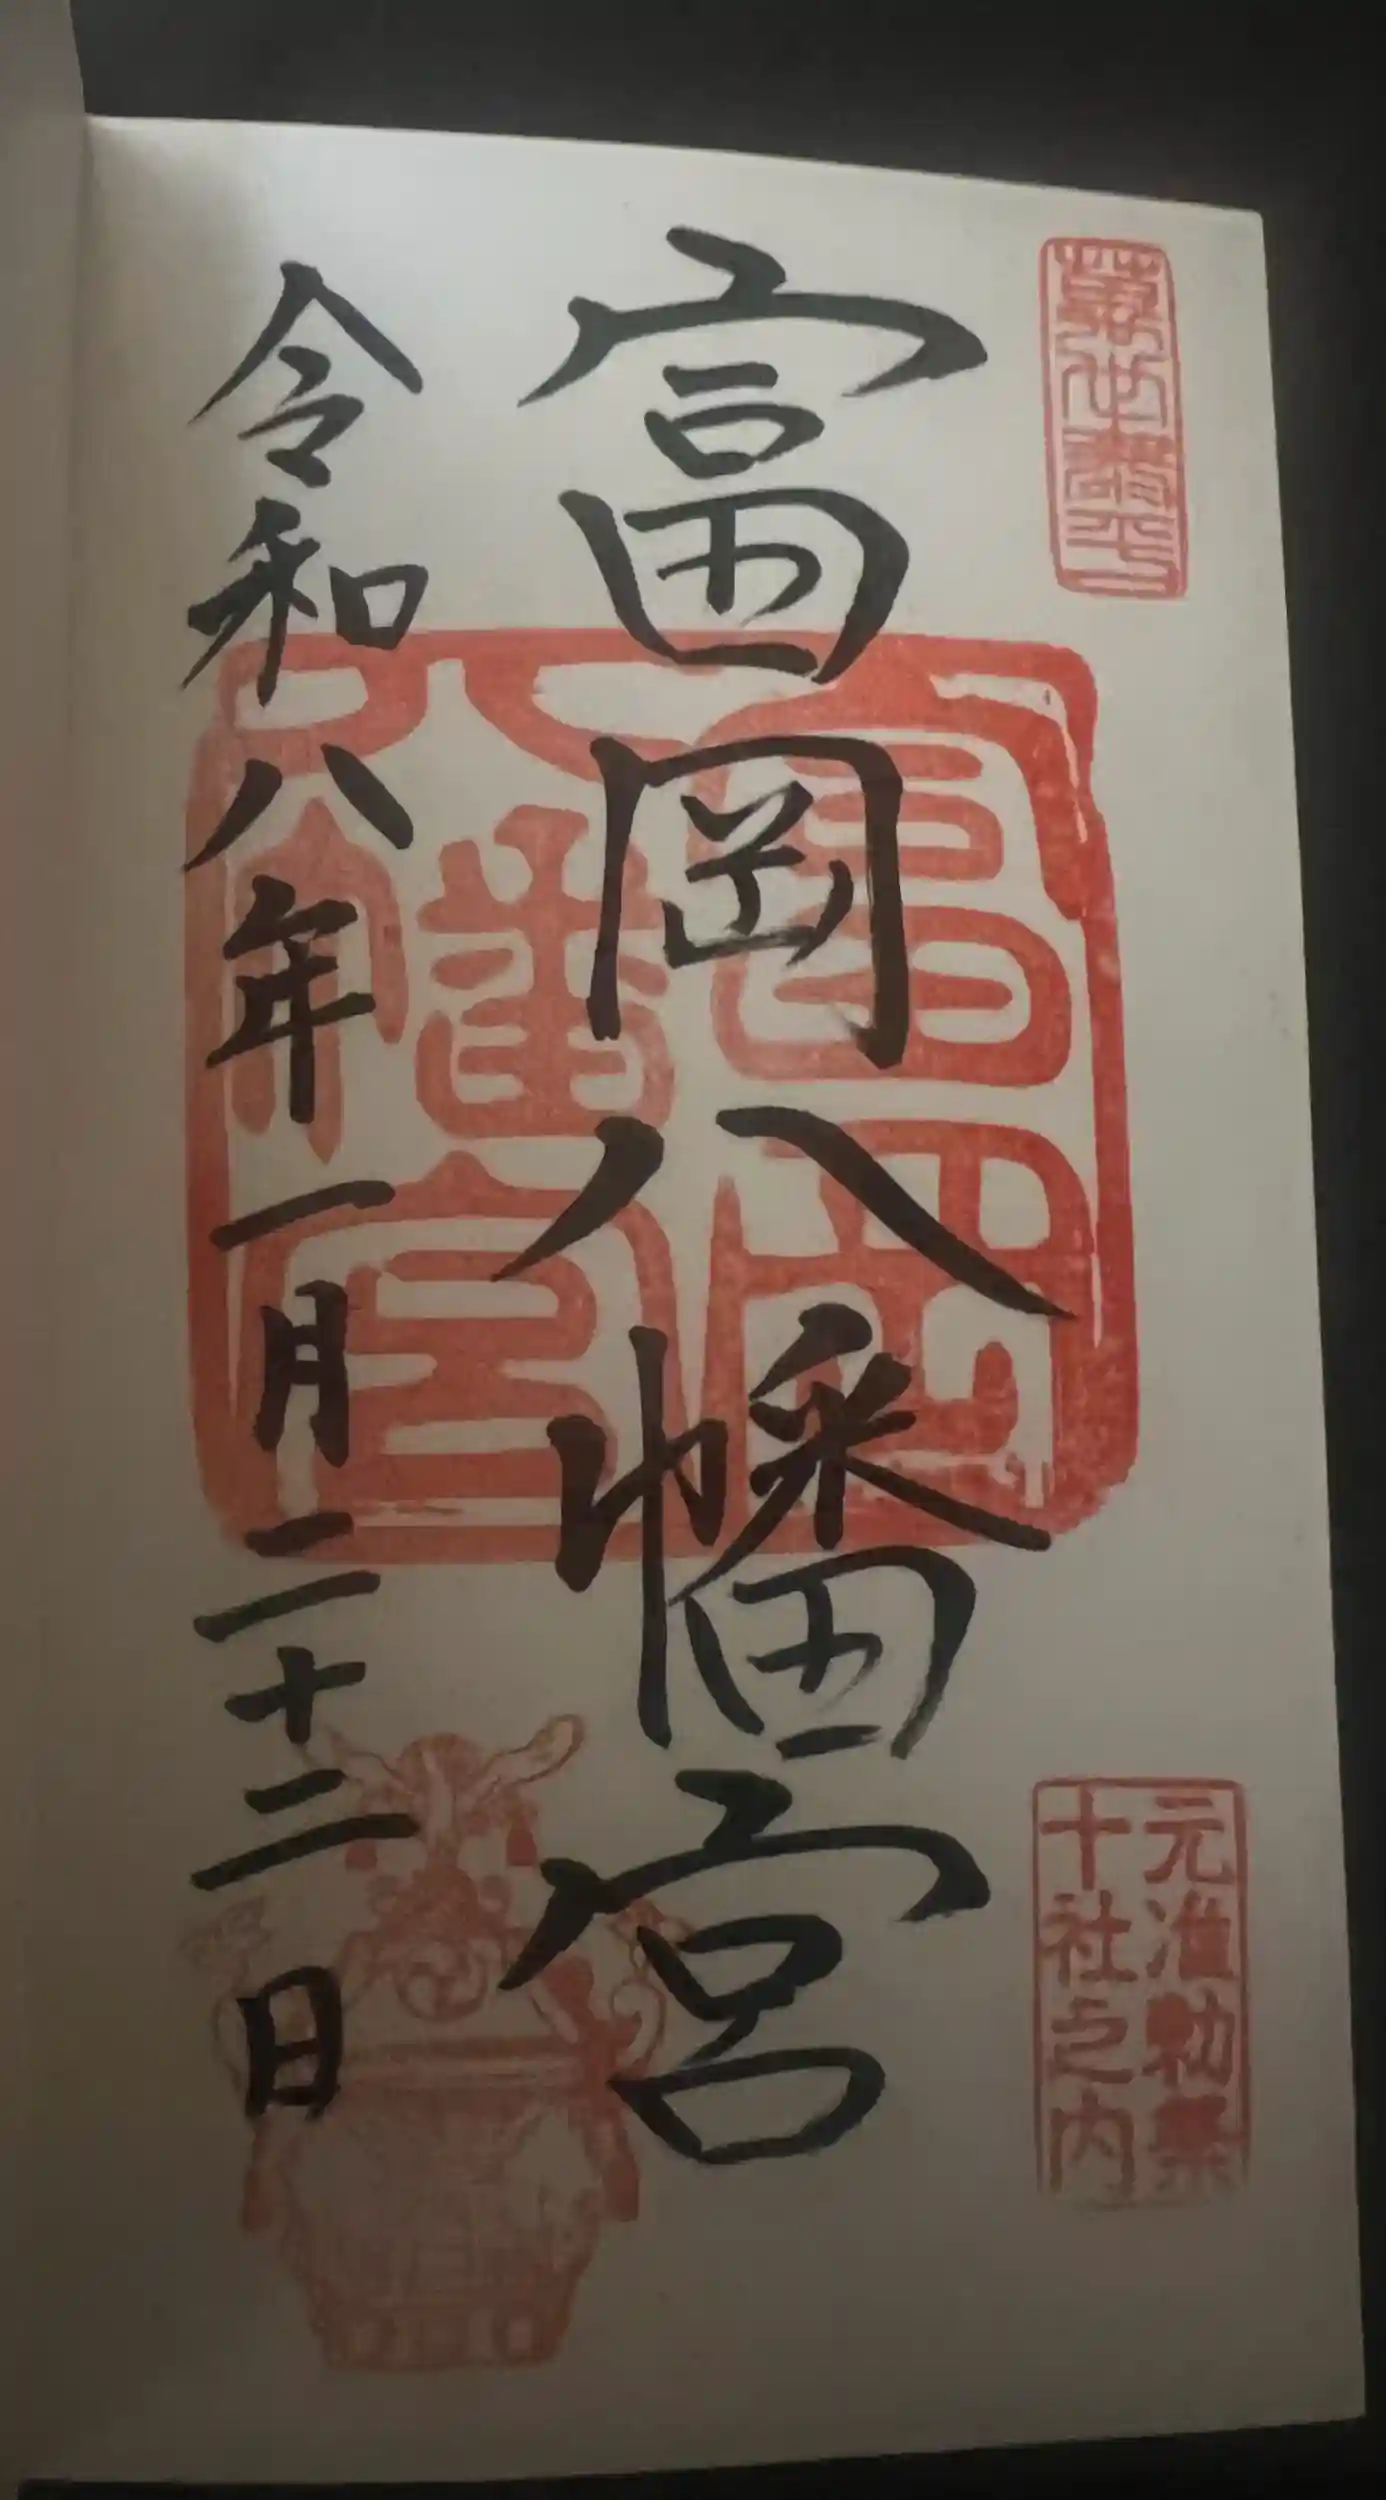 元准勅祭
十社之内
富岡八幡宮
富岡
八幡宮
令和八年一月二十二日